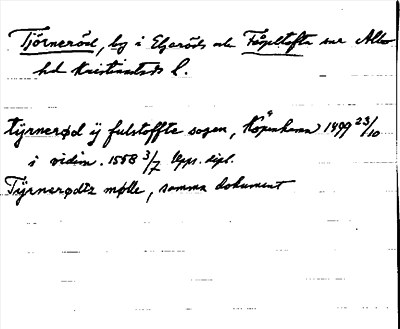 Tjörneröd, by i Eljaröds och Fågeltofta snr Albo
hd Kristianstads l.
tyrnerød ÿ fulstoffte sogen, Köpenhamn 1499 23/10
i vidim. 1558 3/7 Upps. dipl.
Tÿrnerødtz mølle, samma dokument